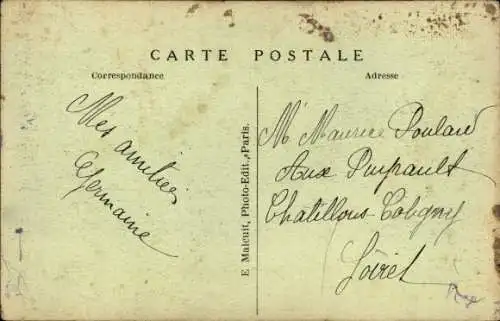 CARTE POSTALE
Correspondance
Adresse
Mes amitiés
Germaine
E. Malcuit, Photo-Edit., Paris.
Mr Maurice Poulard
Aux Puyrault
Chatillons-Coligny
Loiret